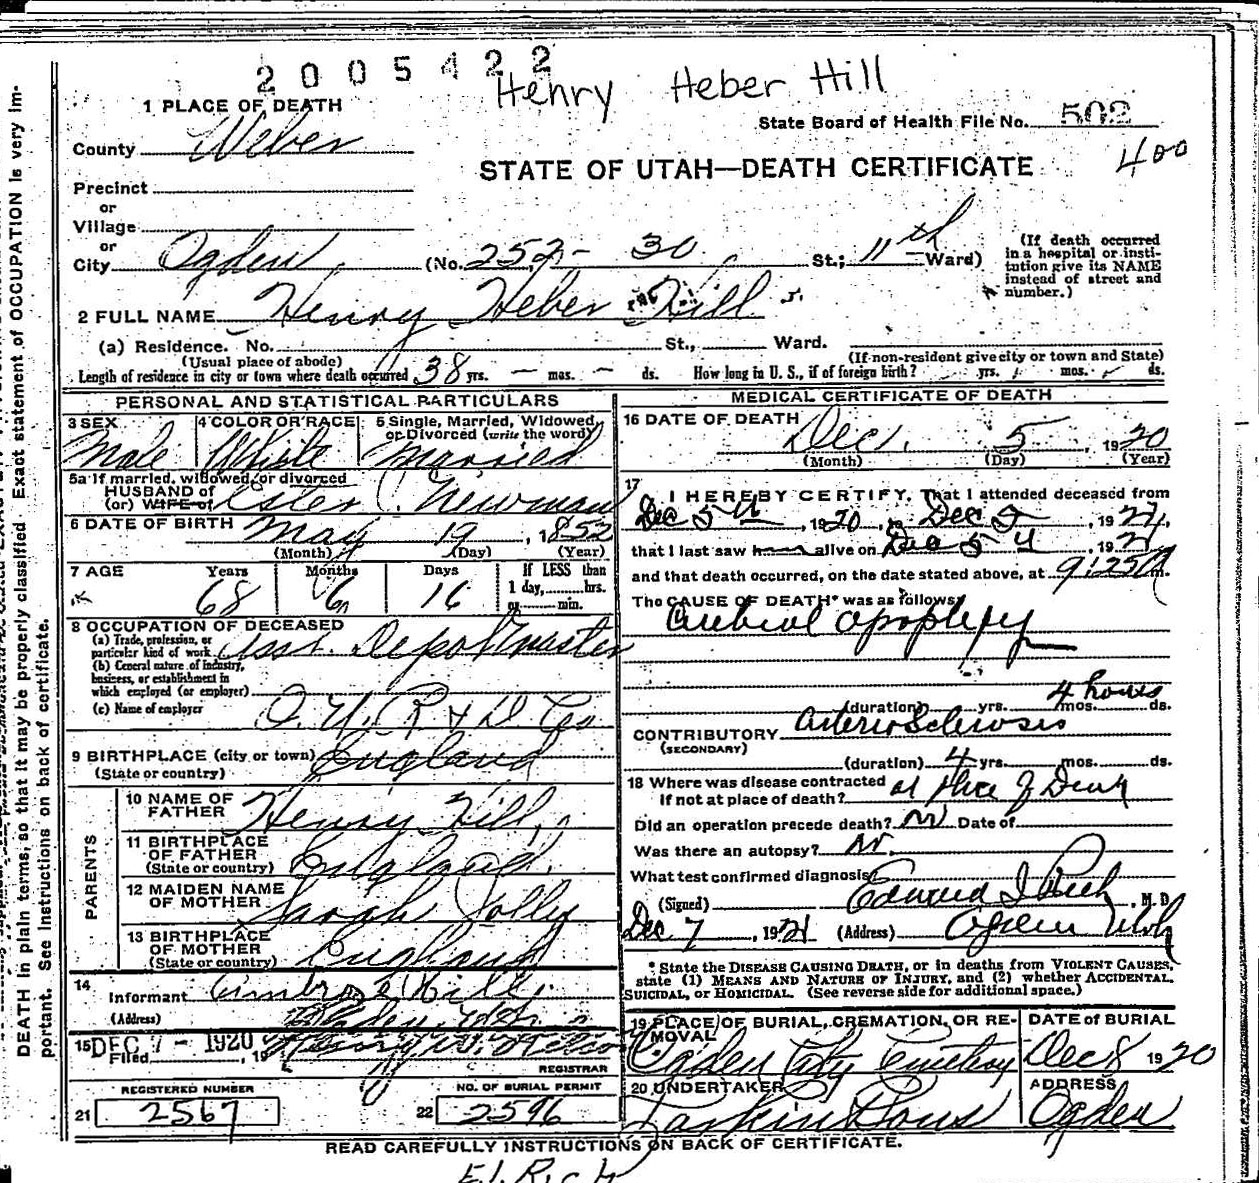 2005422
Henry Heber Hill
1 PLACE OF DEATH
State Board of Health File No. 502
County Weber
400
STATE OF UTAH—DEATH CERTIFICATE
Precinct
or
Village
or
City Ogden (No. 252- 30 St.; 11th Ward)
(If death occurred
in a hospital or insti-
tution give its NAME
instead of street and
number.)
2 FULL NAME Henry Heber Hill
(a) Residence. No. St., Ward.
(Usual place of abode) (If non-resident give city or town and State)
Length of residence in city or town where death occurred 38 yrs. — mos. — ds. How long in U. S., if of foreign birth? yrs. mos. ds.
PERSONAL AND STATISTICAL PARTICULARS
3 SEX 4 COLOR OR RACE 5 Single, Married, Widowed,
or Divorced (write the word)
Male White Married
5a If married, widowed, or divorced
HUSBAND of
(or) WIFE of Ester C. Newman
6 DATE OF BIRTH May 19, 1852
(Month) (Day) (Year)
7 AGE Years Months Days If LESS than
1 day, hrs.
or min.
68 6 16
8 OCCUPATION OF DECEASED
(a) Trade, profession, or
particular kind of work Asst. Depot Master
(b) General nature of industry,
business, or establishment in
which employed (or employer)
(c) Name of employer O. U. R & D Co
9 BIRTHPLACE (city or town) England
(State or country)
PARENTS
10 NAME OF
FATHER Henry Hill,
11 BIRTHPLACE
OF FATHER England
(State or country)
12 MAIDEN NAME
OF MOTHER Sarah Jolly
13 BIRTHPLACE
OF MOTHER England
(State or country)
14
Informant Ambrose Hill
(Address) Ogden, Utah
15 DEC 7 - 1920
Filed , 19
REGISTRAR
REGISTERED NUMBER NO. OF BURIAL PERMIT
21 2567 22 2596
MEDICAL CERTIFICATE OF DEATH
16 DATE OF DEATH
Dec. 5 1920
(Month) (Day) (Year)
17 I HEREBY CERTIFY, That I attended deceased from
Dec 5th, 1920, to Dec 5, 1921,
that I last saw h alive on Dec 5th, 1921
and that death occurred, on the date stated above, at 9:25 A m.
The CAUSE OF DEATH* was as follows:
Cerebral apoplexy
4 hours
(duration) yrs. mos. ds.
CONTRIBUTORY Arterio Sclerosis
(SECONDARY)
(duration) 4 yrs. mos. ds.
18 Where was disease contracted
if not at place of death? at Place of Death
Did an operation precede death? No Date of
Was there an autopsy? No
What test confirmed diagnosis
(Signed) Edward I Rich, M. D.
Dec 7, 1921 (Address) Ogden Utah
* State the DISEASE CAUSING DEATH, or in deaths from VIOLENT CAUSES,
state (1) MEANS AND NATURE OF INJURY, and (2) whether ACCIDENTAL,
SUICIDAL, or HOMICIDAL. (See reverse side for additional space.)
19 PLACE OF BURIAL, CREMATION, OR RE-
MOVAL
DATE OF BURIAL
Ogden City Cemetery Dec 8 1920
20 UNDERTAKER ADDRESS
Larkin & Sons Ogden
READ CAREFULLY INSTRUCTIONS ON BACK OF CERTIFICATE.
E. I. Rich
DEATH in plain terms, so that it may be properly classified. Exact statement of OCCUPATION is very im-
portant. See Instructions on back of certificate.